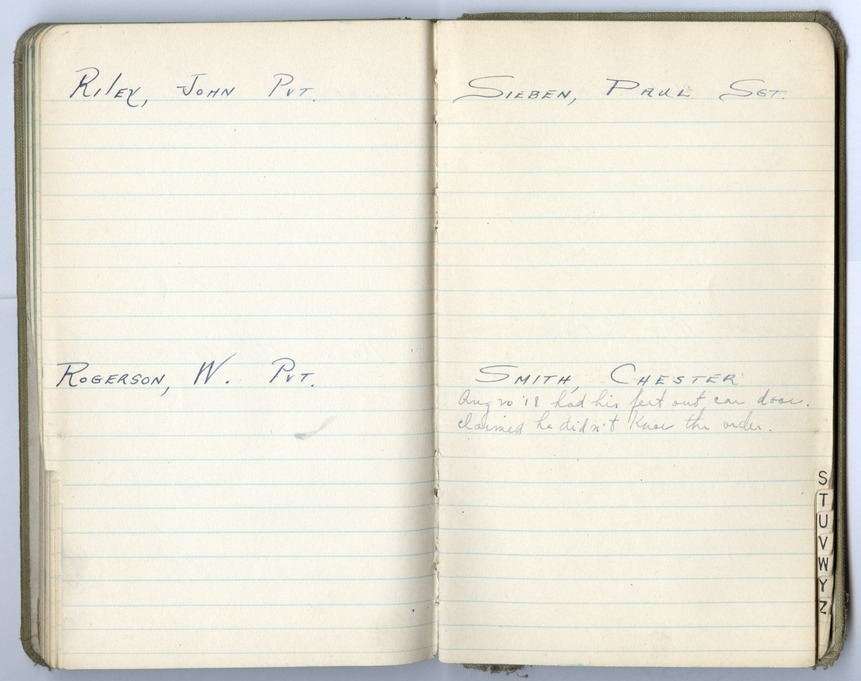 Riley, John Pvt.
Rogerson, W. Pvt.
Sieben, Paul Sgt.
Smith, Chester
Aug 20 '18 had his feet out car door.
claimed he didn't know the order.
S
T
U
V
W
Y
Z